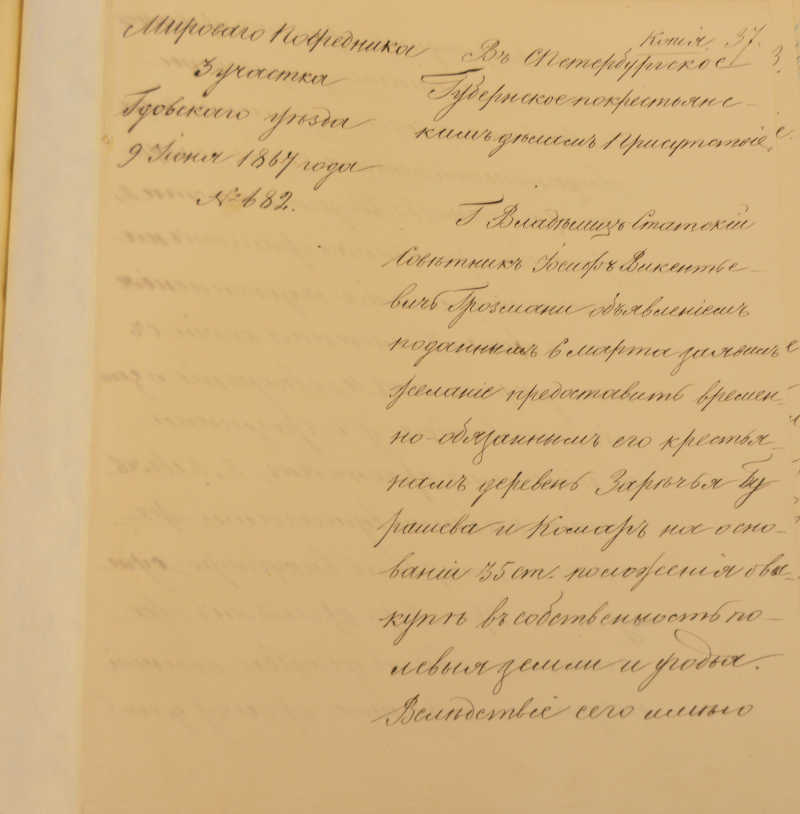 Мироваго Посредника
3 участка
Гдовскаго уѣзда
9 Іюня 1867 года
№ 682.
Копія 37.
3.
Въ СПетербургское
Губернское покрестьянс-
кимъ дѣламъ Присутствіе.
Г Владѣлицъ Статскій
Совѣтникъ Іосифъ Викентье-
вичъ Грозмани объявленіемъ
поданнымъ 6 марта заявилъ
желаніе предоставить времен-
но-обязаннымъ его крестья-
намъ деревень Зарѣчья Бу
рашева и Комаръ на осно-
ваніи 35 ст. положенія о вы-
купѣ въ собственность по-
левыя земли и угодья.
Вслѣдствіе сего мною